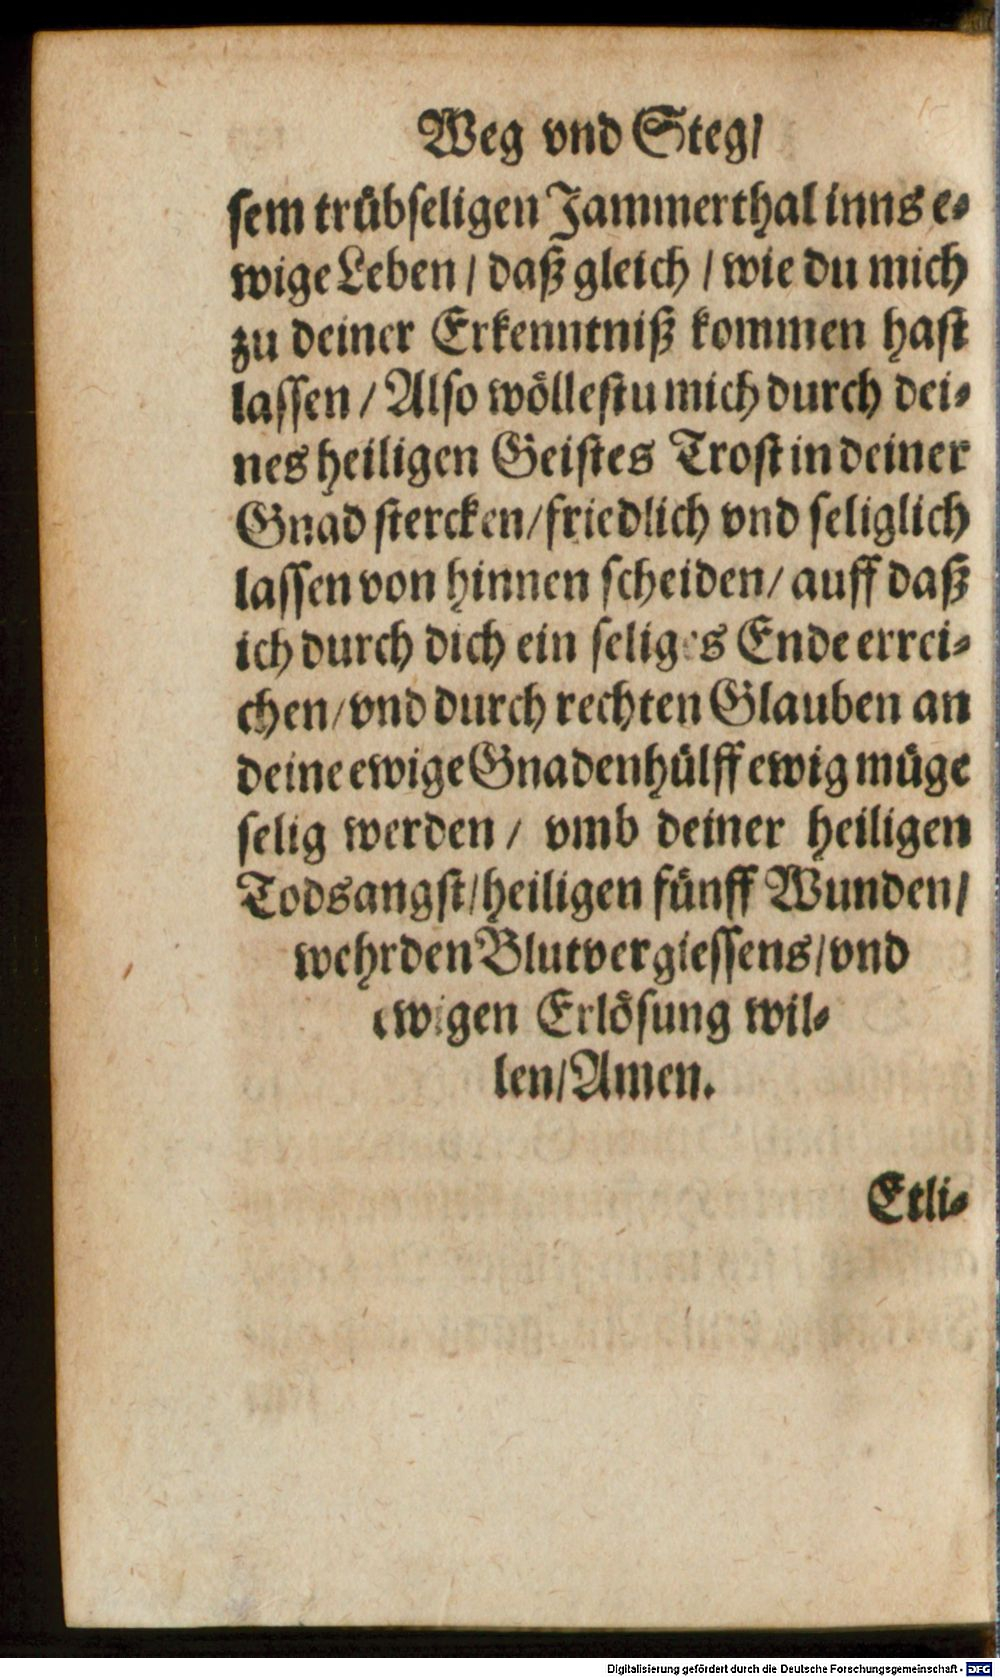 Weg vnd Steg/
sem trübseligen Jammerthal inns e-
wige Leben / daß gleich / wie du mich
zu deiner Erkenntniß kommen hast
lassen / Also wöllestu mich durch dei-
nes heiligen Geistes Trost in deiner
Gnad stercken/friedlich vnd seliglich
lassen von hinnen scheiden/ auff daß
ich durch dich ein seliges Ende errei-
chen/vnd durch rechten Glauben an
deine ewige Gnadenhülff ewig müge
selig werden / vmb deiner heiligen
Todsangst/heiligen fünff Wunden/
wehrden Blutvergiessens/vnd
ewigen Erlösung wil-
len/Amen.
Etli-
Digitalisierung gefördert durch die Deutsche Forschungsgemeinschaft - DFG